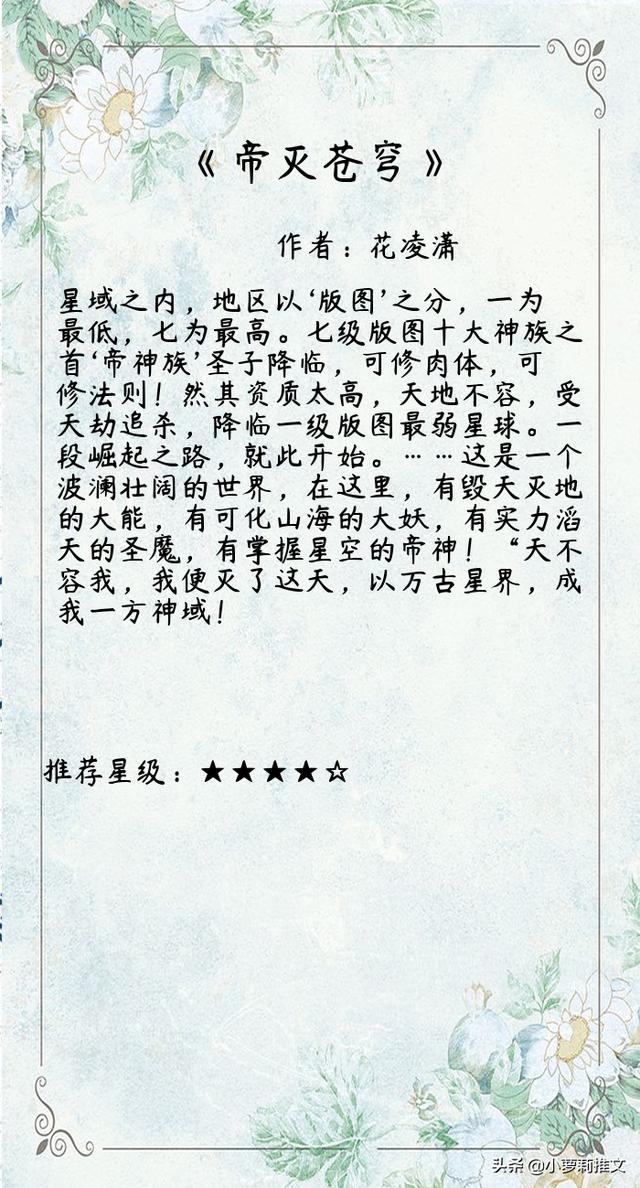 《帝灭苍穹》
作者：花凌潇
星域之内，地区以‘版图’之分，一为
最低，七为最高。七级版图十大神族之
首‘帝神族’圣子降临，可修肉体，可
修法则！然其资质太高，天地不容，受
天劫追杀，降临一级版图最弱星球。一
段崛起之路，就此开始。……这是一个
波澜壮阔的世界，在这里，有毁天灭地
的大能，有可化山海的大妖，有实力滔
天的圣魔，有掌握星空的帝神！“天不
容我，我便灭了这天，以万古星界，成
我一方神域！
推荐星级：★★★★☆
头条 @小萝莉推文